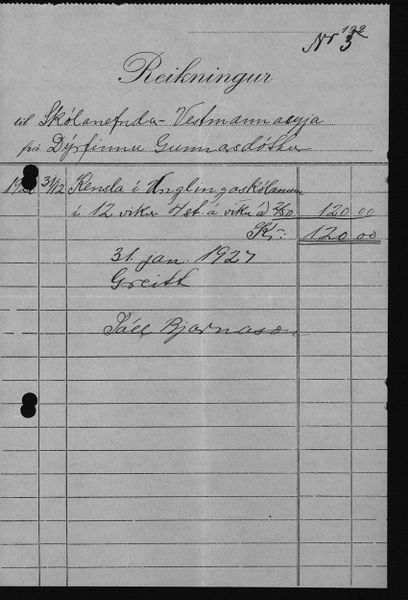 122
Nr 3
Reikningur
til Skólanefnda Vestmannaeyja
frá Dýrfinnu Gunnarsdóttur
31/12 Kensla í Unglingaskólanum
í 12 vikur 4 st á viku á 2/50 120.00
Kr: 120.00
31. jan. 1927
Greitt
Páll Bjarnason